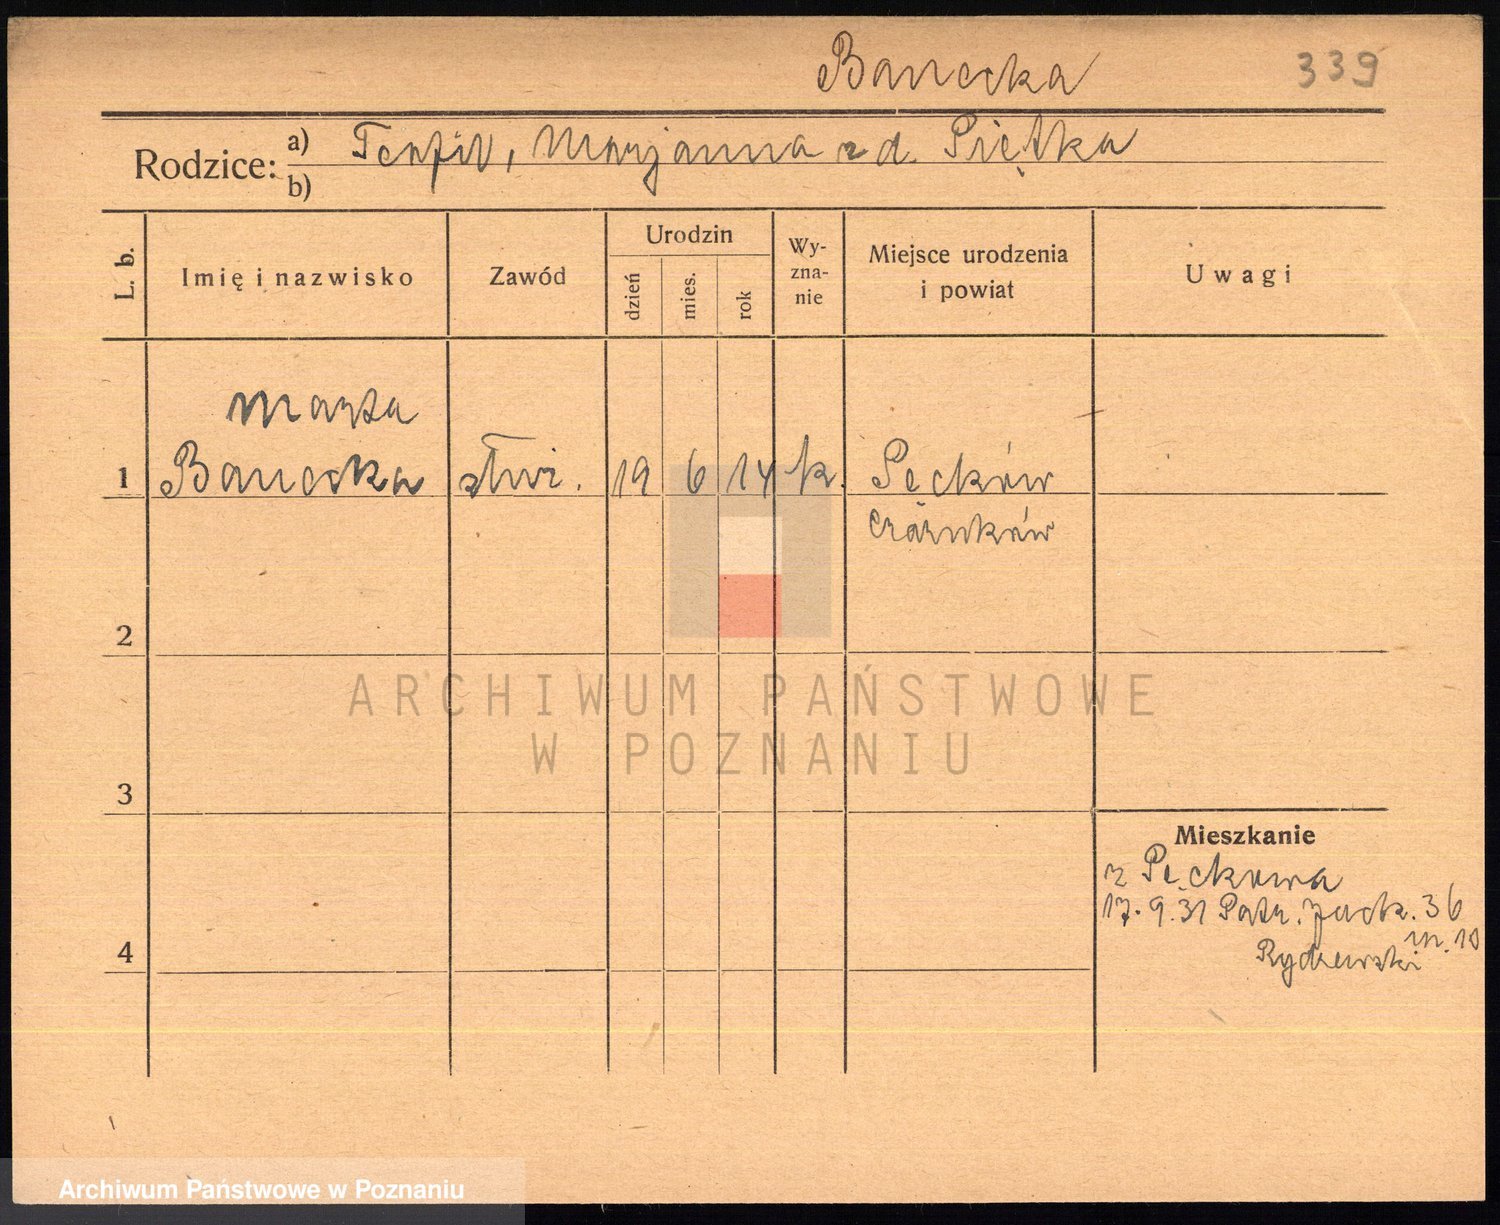 Banecka 339
Rodzice: a) Teofil, Marjanna z d. Piętka
b)
L. b.
Imię i nazwisko
Zawód
Urodzin
dzień
mies.
rok
Wy-
zna-
nie
Miejsce urodzenia
i powiat
Uwagi
Marta
1 Banecka służ. 19 6 14 k. Pęcków
Czarnków
2
3
4
Mieszkanie
z Pęckowa
17.9.31 Patr. Jack. 36
m. 10
Rydzewski
ARCHIWUM PAŃSTWOWE
W POZNANIU
Archiwum Państwowe w Poznaniu